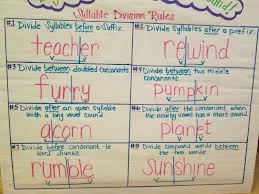 Syllable Division Rules
#1 Divide Syllables before a Suffix.
teacher
#2 Divide Syllables after a prefix.
rewind
#3 Divide between doubled consonants.
furry
#4 Divide between two middle
consonants.
pumpkin
#5 Divide after an open syllable
with a long vowel sound
acorn
#6 Divide after the consonant when
the nearby vowel has a short sound.
planet
#7 Divide before consonant-le
word chunks.
rumble
#8 Divide compound words between
the two words.
Sunshine